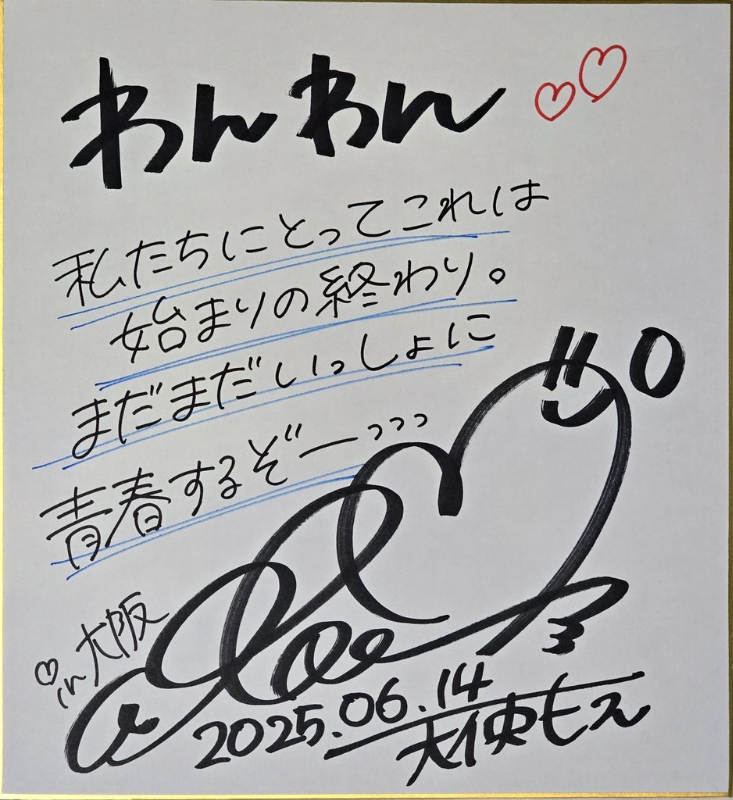 わんわん
私たちにとってこれは
始まりの終わり。
まだまだいっしょに
青春するぞーっっっ
in大阪
2025.06.14